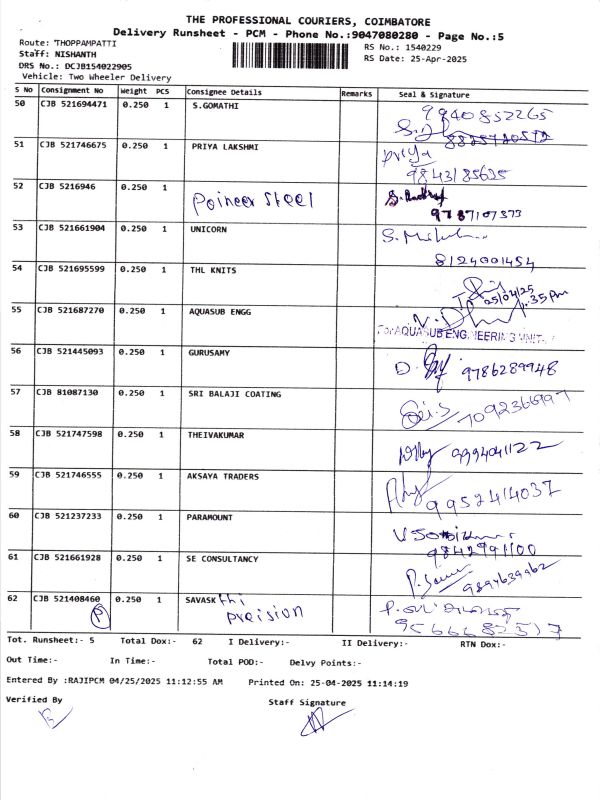 THE PROFESSIONAL COURIERS, COIMBATORE
Delivery Runsheet - PCM - Phone No.:9047080280 - Page No.:5
Route: THOPPAMPATTI
RS No.: 1540229
Staff: NISHANTH
RS Date: 25-Apr-2025
DRS No.: DCJB154022905
Vehicle: Two Wheeler Delivery
S No Consignment No Weight PCS Consignee Details Remarks Seal & Signature
50 CJB 521694471 0.250 1 S.GOMATHI 9940852265
8825720572
51 CJB 521746675 0.250 1 PRIYA LAKSHMI Priya
9843185625
52 CJB 5216946 0.250 1 Poineer Steel
9787107373
53 CJB 521661904 0.250 1 UNICORN
8124001454
54 CJB 521695599 0.250 1 THL KNITS
25/04/25
55 CJB 521687270 0.250 1 AQUASUB ENGG
For AQUASUB ENGINEERING UNIT
56 CJB 521445093 0.250 1 GURUSAMY 9786289948
57 CJB 81087130 0.250 1 SRI BALAJI COATING 7092366997
58 CJB 521747598 0.250 1 THEIVAKUMAR 9994041122
59 CJB 521746555 0.250 1 AKSAYA TRADERS 9952414037
60 CJB 521237233 0.250 1 PARAMOUNT
9842991100
61 CJB 521661928 0.250 1 SE CONSULTANCY
9894639962
62 CJB 521408460 0.250 1 SAVASKthi
P
precision
Tot. Runsheet:- 5 Total Dox:- 62 I Delivery:- II Delivery:- RTN Dox:-
Out Time:- In Time:- Total POD:- Delvy Points:-
Entered By :RAJIPCM 04/25/2025 11:12:55 AM Printed On: 25-04-2025 11:14:19
Verified By Staff Signature